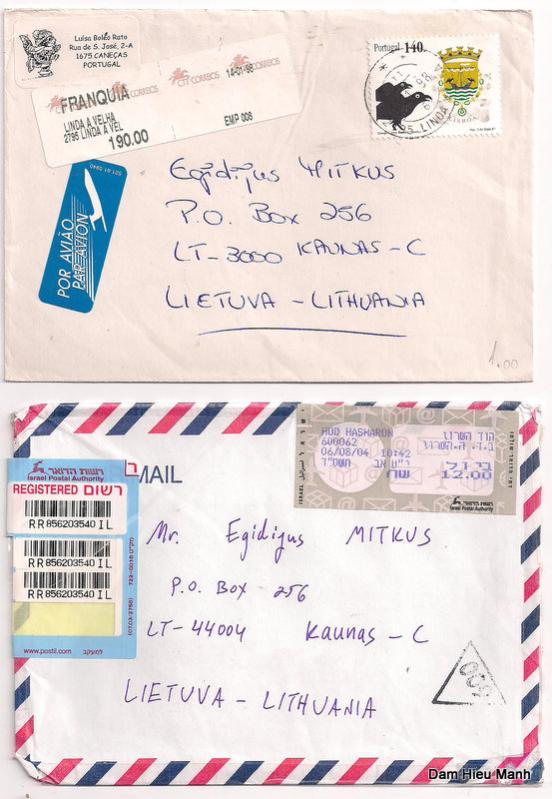 Luisa Boléo Rato
Rua de S. José, 2-A
1675 CANEÇAS
PORTUGAL
CTT CORREIOS
14-01-98
FRANQUIA
LINDA A VELHA
2795 LINDA A VEL
190.00
EMP 006
Portugal 140.
LISBOA
LINDA
POR AVIÃO
PAR AVION
Egidijus MITKUS
P.O. Box 256
LT-3000 KAUNAS-C
LIETUVA - LITHUANIA
1.00
MAIL
רשות הדואר
Israel Postal Authority
REGISTERED רשום
RR 856203540 IL
RR 856203540 IL
RR 856203540 IL
www.postil.com למעקב
HOD HASHARON
600062
06/08/04 10:42
הוד השרון
12.00
Israel Postal Authority
Mr. Egidijus MITKUS
P.O. Box 256
LT-44004 Kaunas - C
LIETUVA - LITHUANIA
Dam Hieu Manh